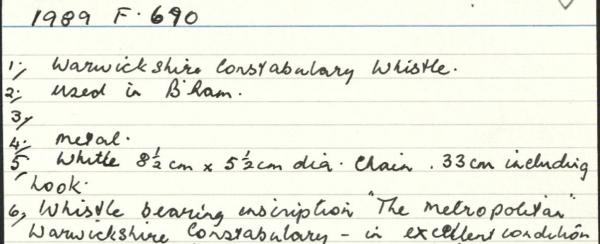 1989 F. 690
1; Warwickshire Constabulary Whistle.
2; used in B'ham.
3;
4; metal.
5; Whitle 8½ cm x 5½ cm dia. Chain. 33 cm including
hook.
6, Whistle bearing inscription "The Metropolitan"
Warwickshire Constabulary - in excellent condition